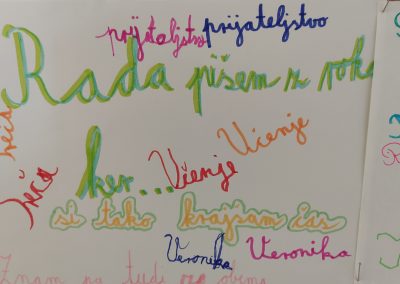 prijateljstvo prijateljstvo
Rada pišem z roko
Učenje
ker... Učenje
si tako krajšam čas
Veronika Veronika
Znam pa tudi